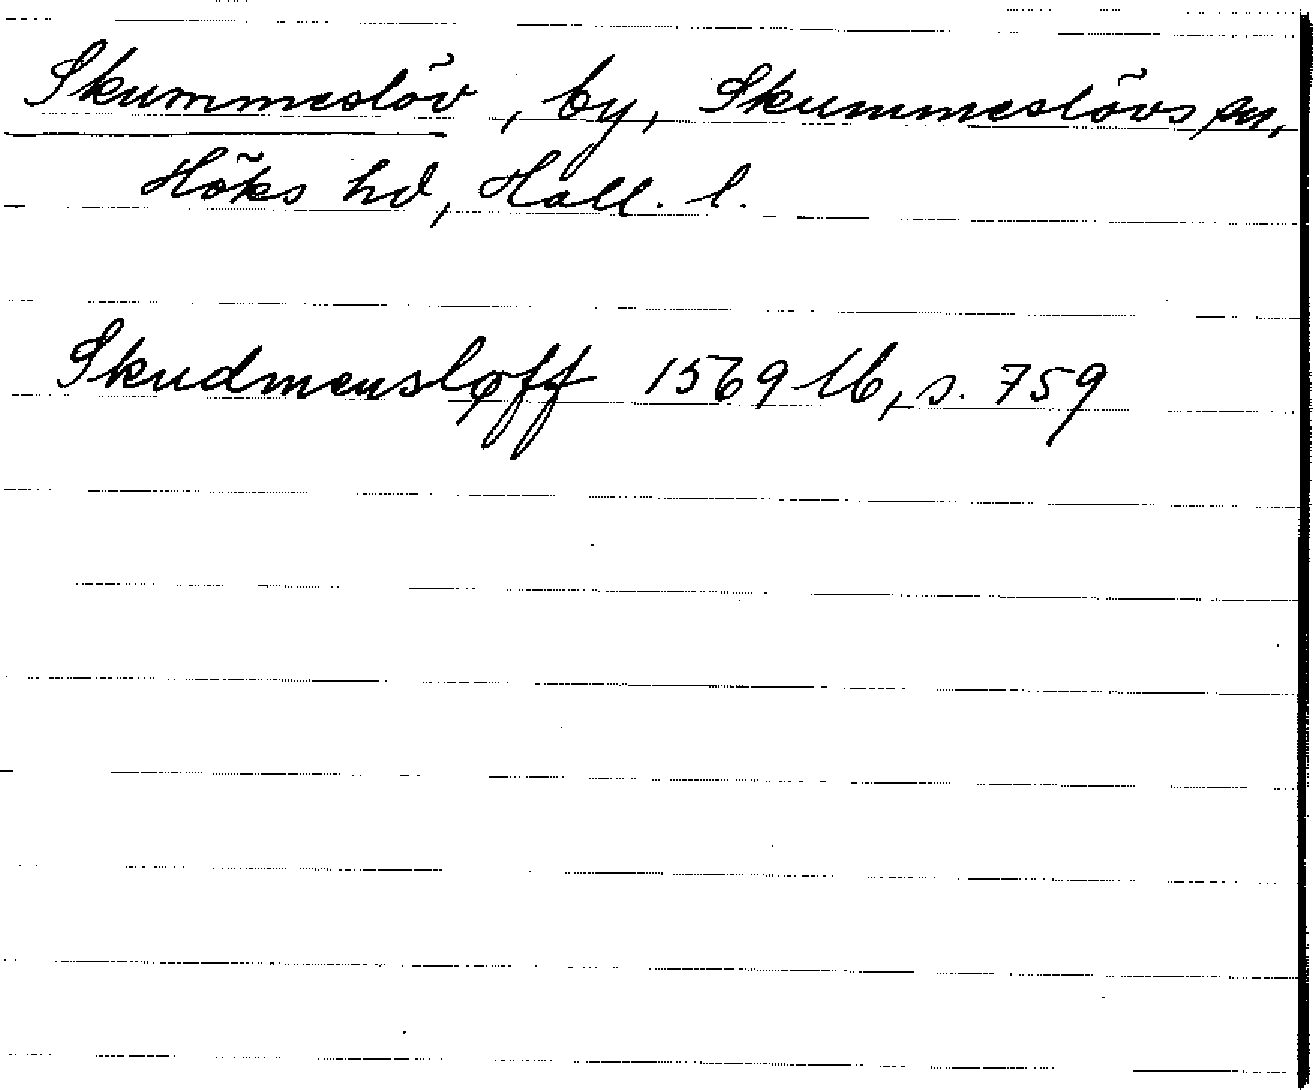 Skummeslöv, by, Skummeslövs sn,
Höks hd, Hall. l.
Skudmensløff 1569 lb, s. 759